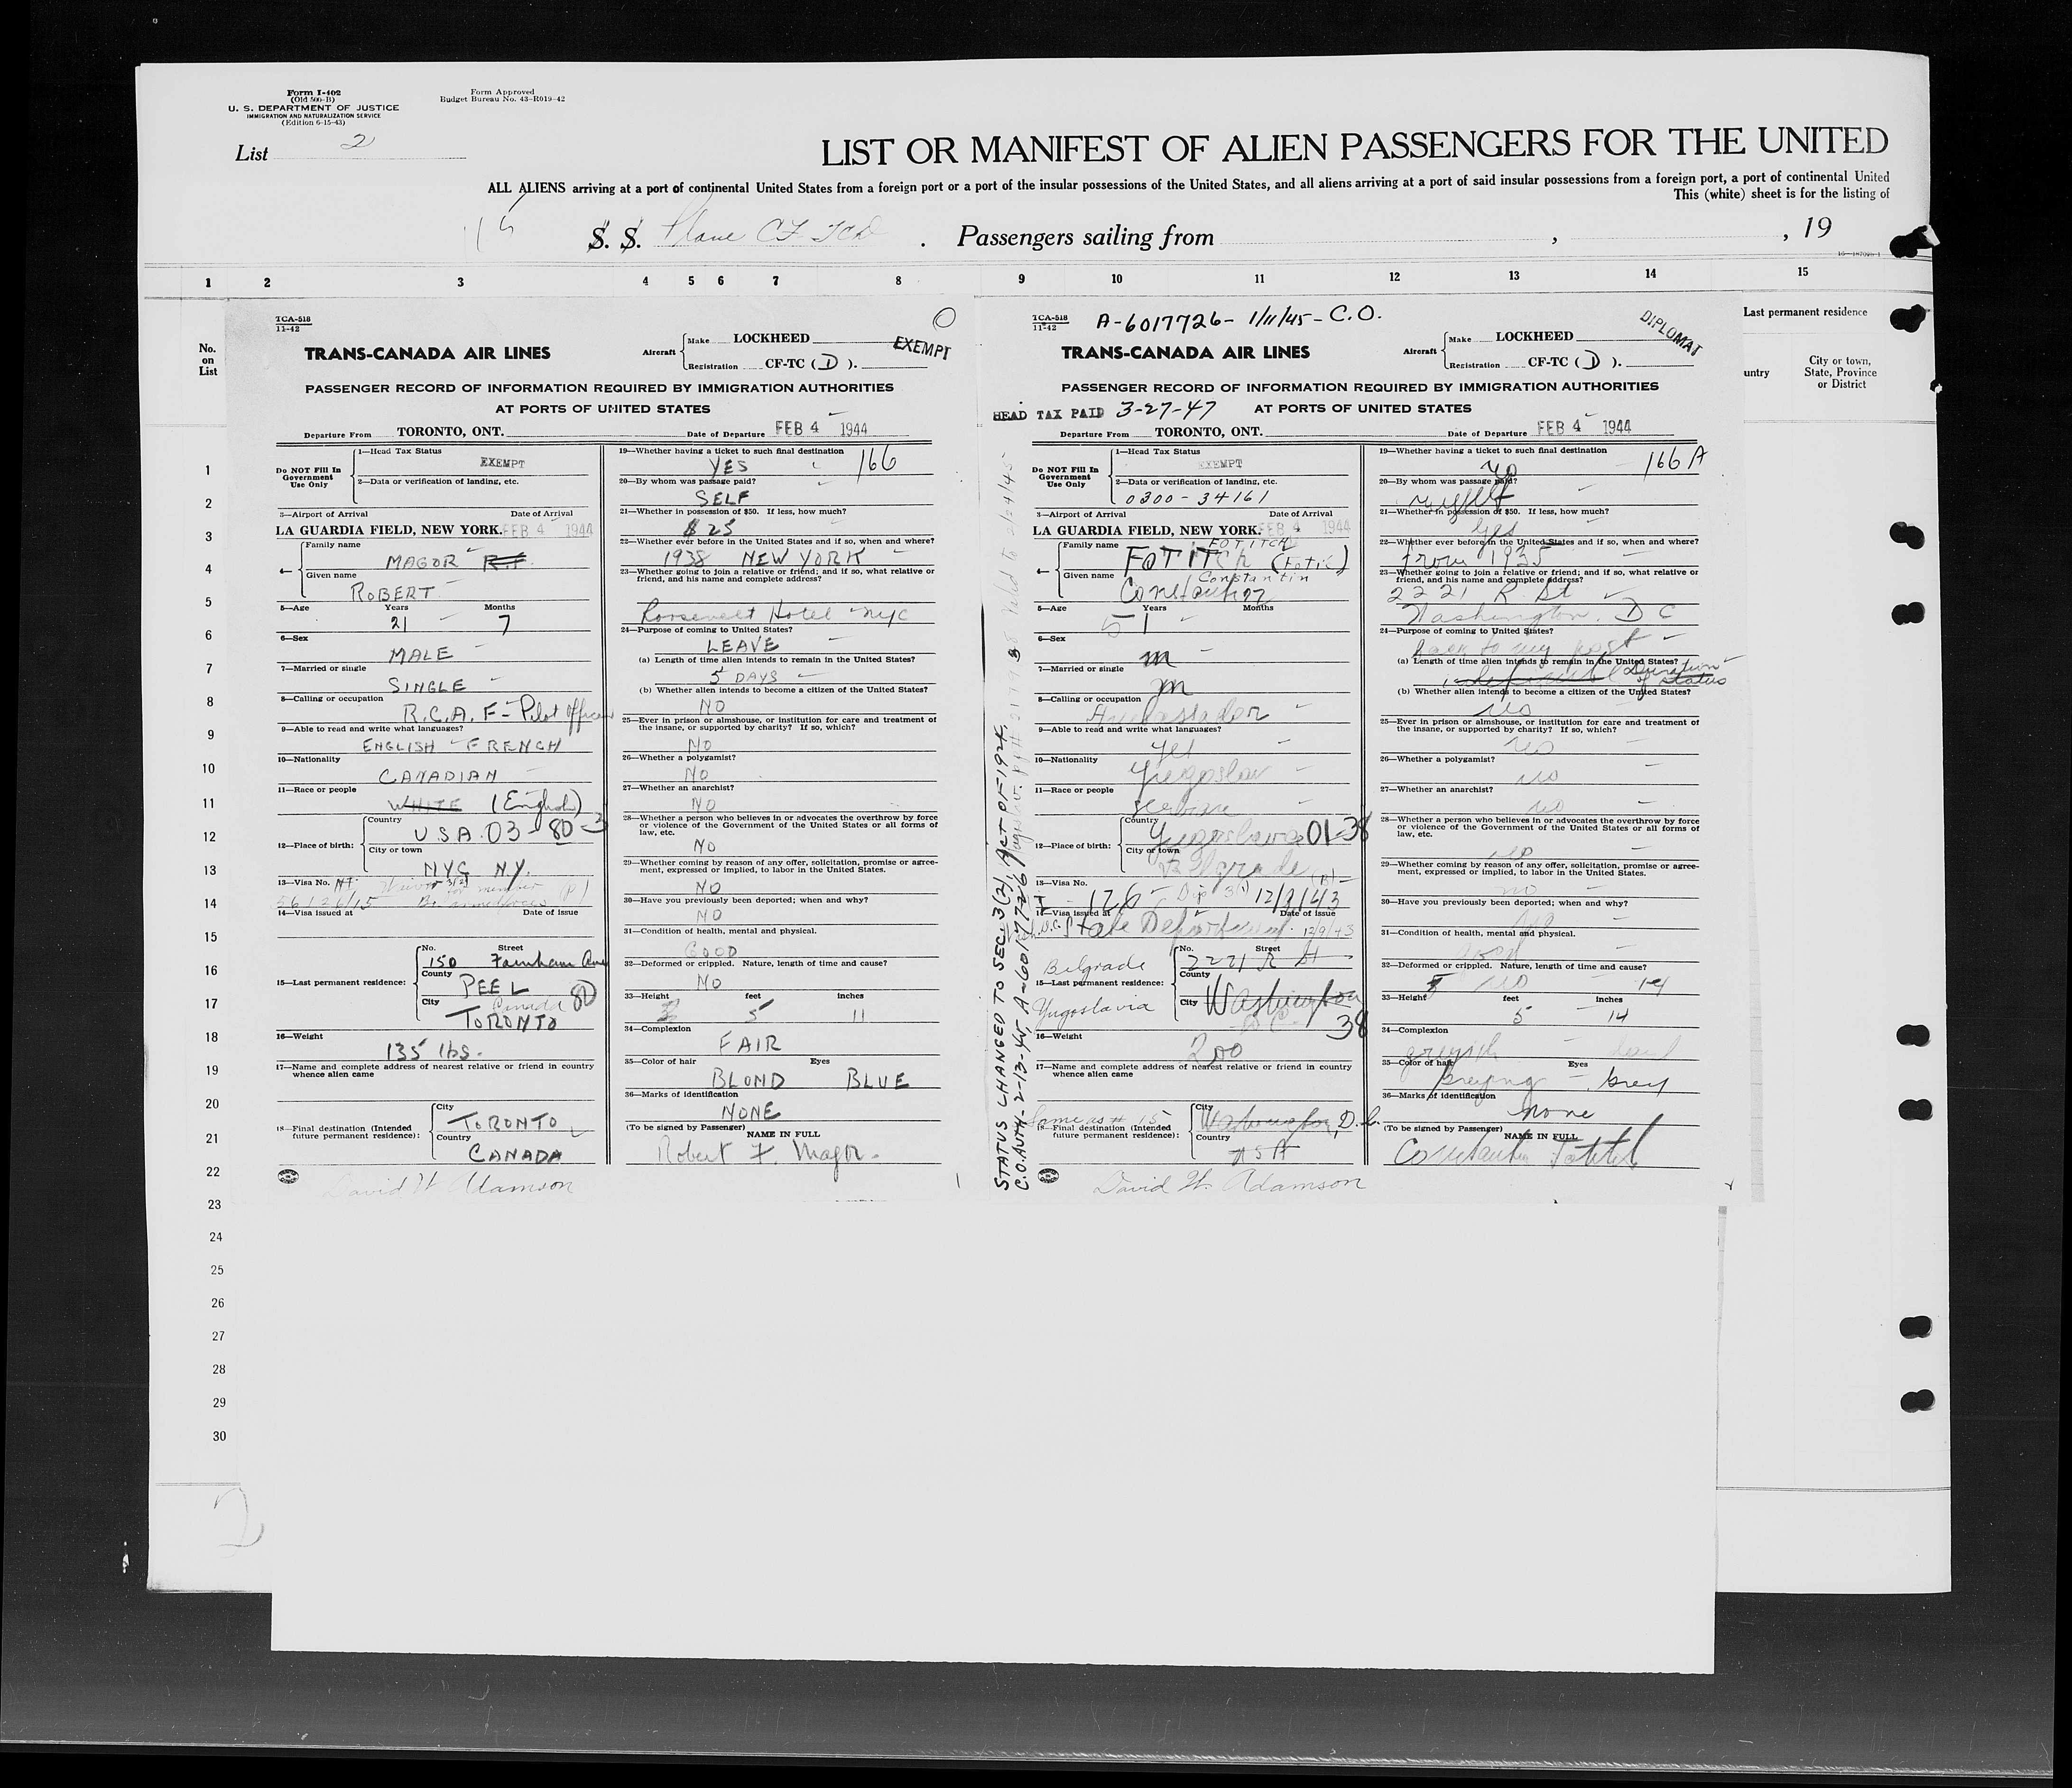 Form I-402
(Old 500-B)
U. S. DEPARTMENT OF JUSTICE
IMMIGRATION AND NATURALIZATION SERVICE
(Edition 6-15-43)
Form Approved
Budget Bureau No. 43-R019-42
List 2
LIST OR MANIFEST OF ALIEN PASSENGERS FOR THE UNITED
ALL ALIENS arriving at a port of continental United States from a foreign port or a port of the insular possessions of the United States, and all aliens arriving at a port of said insular possessions from a foreign port, a port of continental United
This (white) sheet is for the listing of
S. S. Plane CF TCD . Passengers sailing from , , 19
1 2 3 4 5 6 7 8 9 10 11 12 13 14 15
No.
on
List
Last permanent residence
untry
City or town,
State, Province
or District
1
2
3
4
5
6
7
8
9
10
11
12
13
14
15
16
17
18
19
20
21
22
23
24
25
26
27
28
29
30
TCA-518
11-42
EXEMPT
TRANS-CANADA AIR LINES
Aircraft
Make LOCKHEED
Registration CF-TC ( D ).
PASSENGER RECORD OF INFORMATION REQUIRED BY IMMIGRATION AUTHORITIES
AT PORTS OF UNITED STATES
Departure From TORONTO, ONT. Date of Departure FEB 4 1944
Do NOT Fill In
Government
Use Only
1—Head Tax Status
EXEMPT
2—Data or verification of landing, etc.
3—Airport of Arrival Date of Arrival
LA GUARDIA FIELD, NEW YORK. FEB 4 1944
4— Family name
MAGOR R.F.
Given name
ROBERT
5—Age Years Months
21 7
6—Sex
MALE
7—Married or single
SINGLE
8—Calling or occupation
R.C.A.F - Pilot Officer
9—Able to read and write what languages?
ENGLISH - FRENCH
10—Nationality
CANADIAN
11—Race or people
WHITE (English)
12—Place of birth: Country
U.S.A. 03-80-3
City or town
NYC NY.
13—Visa No.
14—Visa issued at Date of issue
15—Last permanent residence:
No. Street
150 Farnham Ave
County
PEEL
City Canada 80
TORONTO
16—Weight
135 lbs.
17—Name and complete address of nearest relative or friend in country
whence alien came
18—Final destination (Intended
future permanent residence):
City
TORONTO
Country
CANADA
David W. Adamson
19—Whether having a ticket to such final destination
YES 166
20—By whom was passage paid?
SELF
21—Whether in possession of $50. If less, how much?
$ 25
22—Whether ever before in the United States and if so, when and where?
1938 NEW YORK
23—Whether going to join a relative or friend; and if so, what relative or
friend, and his name and complete address?
Roosevelt Hotel NYC
24—Purpose of coming to United States?
LEAVE
(a) Length of time alien intends to remain in the United States?
5 DAYS
(b) Whether alien intends to become a citizen of the United States?
NO
25—Ever in prison or almshouse, or institution for care and treatment of
the insane, or supported by charity? If so, which?
NO
26—Whether a polygamist?
NO
27—Whether an anarchist?
NO
28—Whether a person who believes in or advocates the overthrow by force
or violence of the Government of the United States or all forms of
law, etc.
NO
29—Whether coming by reason of any offer, solicitation, promise or agree-
ment, expressed or implied, to labor in the United States.
NO
30—Have you previously been deported; when and why?
NO
31—Condition of health, mental and physical.
GOOD
32—Deformed or crippled. Nature, length of time and cause?
NO
33—Height feet inches
5 11
34—Complexion
FAIR
35—Color of hair Eyes
BLOND BLUE
36—Marks of identification
NONE
(To be signed by Passenger)
NAME IN FULL
Robert F. Magor.
TCA-518
11-42
A-6017726- 1/11/45 - C.O.
DIPLOMAT
TRANS-CANADA AIR LINES
Aircraft
Make LOCKHEED
Registration CF-TC ( D ).
PASSENGER RECORD OF INFORMATION REQUIRED BY IMMIGRATION AUTHORITIES
HEAD TAX PAID 3-27-47 AT PORTS OF UNITED STATES
Departure From TORONTO, ONT. Date of Departure FEB 4 1944
Do NOT Fill In
Government
Use Only
1—Head Tax Status
EXEMPT
2—Data or verification of landing, etc.
0300-34161
3—Airport of Arrival Date of Arrival
LA GUARDIA FIELD, NEW YORK. FEB 4 1944
4— Family name FOTITCH
FOTITCH (Fotic)
Given name Constantin
Constantin
5—Age Years Months
51
6—Sex
m
7—Married or single
m
8—Calling or occupation
Ambassador
9—Able to read and write what languages?
yes
10—Nationality
Yugoslav
11—Race or people
Serbian
12—Place of birth: Country
Yugoslavia 01-38
City or town
Belgrade
13—Visa No.
126 Dip 3(1) 12/9/43
14—Visa issued at Date of issue
State Department 12/9/43
Belgrade
15—Last permanent residence:
Yugoslavia
No. Street
2221 R St
County
City Washington
D.C. 38
16—Weight
200
17—Name and complete address of nearest relative or friend in country
whence alien came
Same as # 15
18—Final destination (Intended
future permanent residence):
City
Washington, D.C.
Country
USA
David W. Adamson
STATUS CHANGED TO SEC. 3(2), ACT OF 1924,
C.O. AUTH. 2-13-45, A-6017726
19—Whether having a ticket to such final destination
yes 166 A
20—By whom was passage paid?
myself
21—Whether in possession of $50. If less, how much?
yes
22—Whether ever before in the United States and if so, when and where?
from 1935
23—Whether going to join a relative or friend; and if so, what relative or
friend, and his name and complete address?
2221 R St
Washington. D C
24—Purpose of coming to United States?
back to my post
(a) Length of time alien intends to remain in the United States?
Duration of Status
(b) Whether alien intends to become a citizen of the United States?
no
25—Ever in prison or almshouse, or institution for care and treatment of
the insane, or supported by charity? If so, which?
no
26—Whether a polygamist?
no
27—Whether an anarchist?
no
28—Whether a person who believes in or advocates the overthrow by force
or violence of the Government of the United States or all forms of
law, etc.
no
29—Whether coming by reason of any offer, solicitation, promise or agree-
ment, expressed or implied, to labor in the United States.
no
30—Have you previously been deported; when and why?
no
31—Condition of health, mental and physical.
good
32—Deformed or crippled. Nature, length of time and cause?
no
33—Height feet inches
5 14
34—Complexion
35—Color of hair Eyes
greying grey
36—Marks of identification
none
(To be signed by Passenger)
NAME IN FULL
Constantin Fotitch